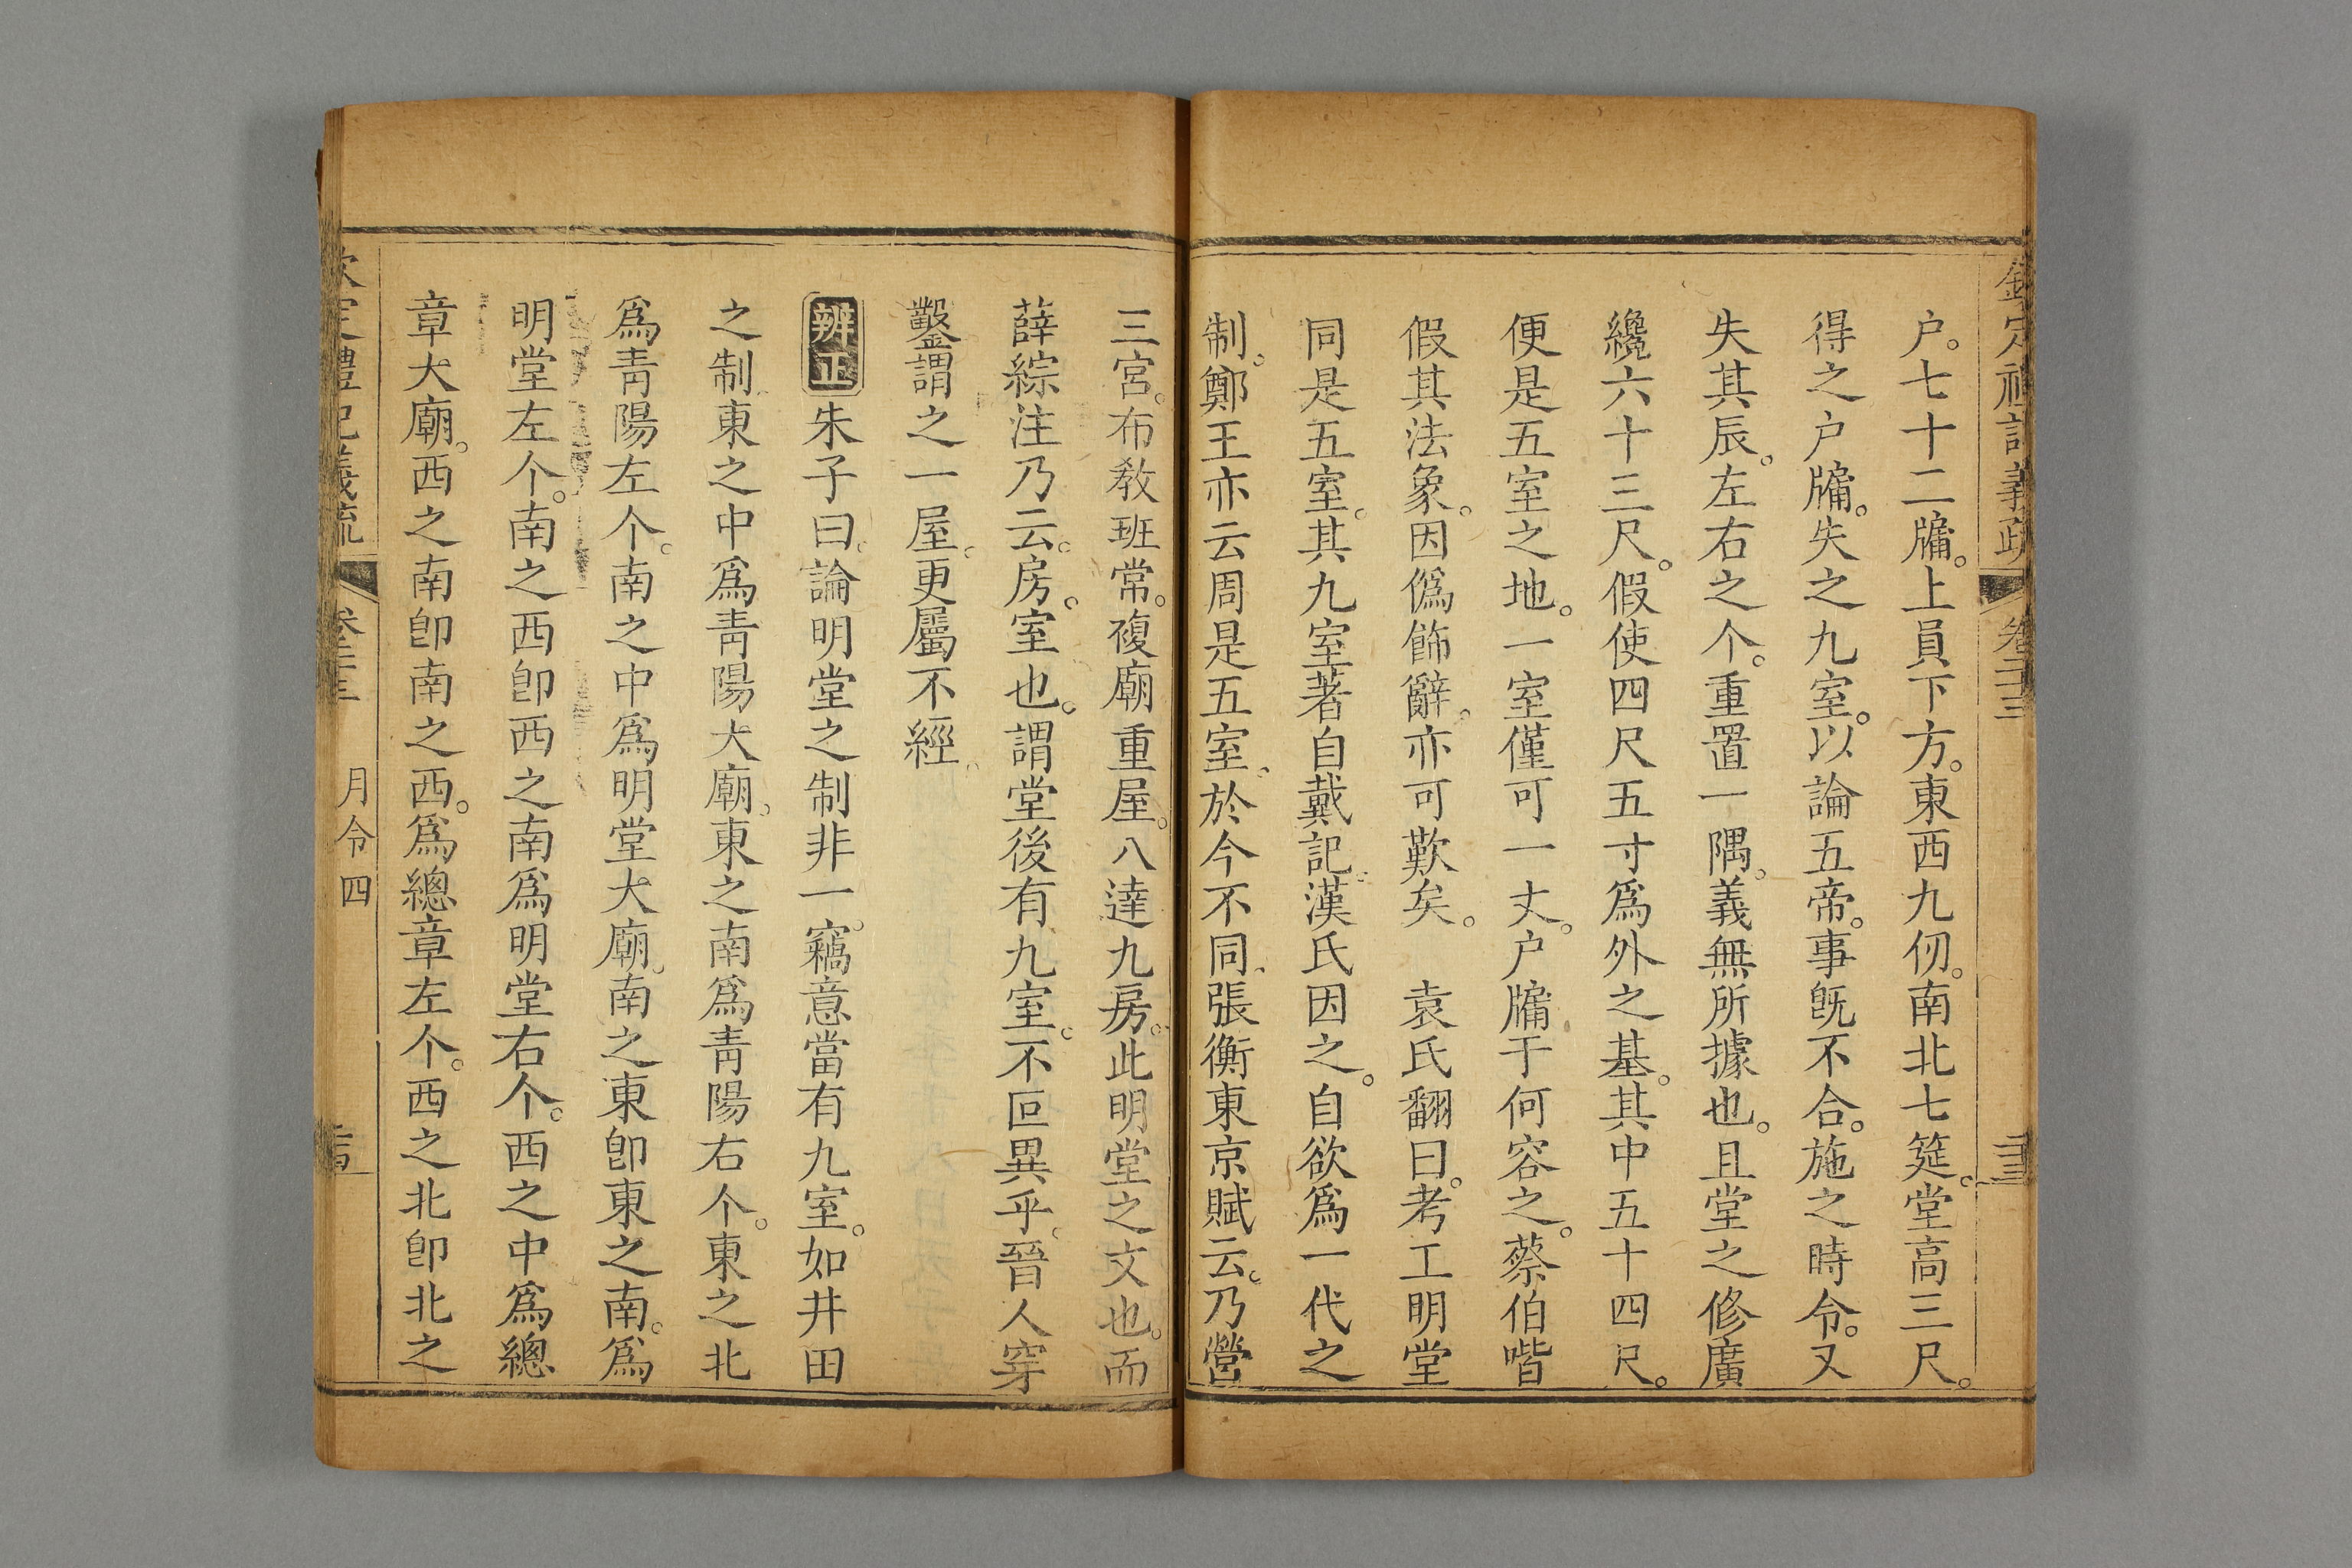 欽定禮記義疏 卷二十三
户。七十二牖。上員下方。東西九仞。南北七筵。堂高三尺。
得之户牖。失之九室。以論五帝。事旣不合。施之時令。又
失其辰。左右之个。重置一隅。義無所據也。且堂之修廣
纔六十三尺。假使四尺五寸爲外之基。其中五十四尺。
便是五室之地。一室僅可一丈。户牖于何容之。蔡伯喈
假其法象。因僞飾辭。亦可歎矣。 袁氏翻曰。考工明堂
同是五室。其九室著自戴記。漢氏因之。自欲爲一代之
制。鄭王亦云周是五室。於今不同。張衡東京賦云。乃營
三宮。布敎班常。複廟重屋。八達九房。此明堂之文也。而
薛綜注乃云。房。室也。謂堂後有九室。不叵異乎。晉人穿
鑿謂之一屋。更屬不經。
辨正 朱子曰。論明堂之制非一。竊意當有九室。如井田
之制。東之中爲靑陽大廟。東之南爲靑陽右个。東之北
爲靑陽左个。南之中爲明堂大廟。南之東卽東之南。爲
明堂左个。南之西卽西之南爲明堂右个。西之中爲總
章大廟。西之南卽南之西。爲總章左个。西之北卽北之
欽定禮記義疏 卷二十三 月令四